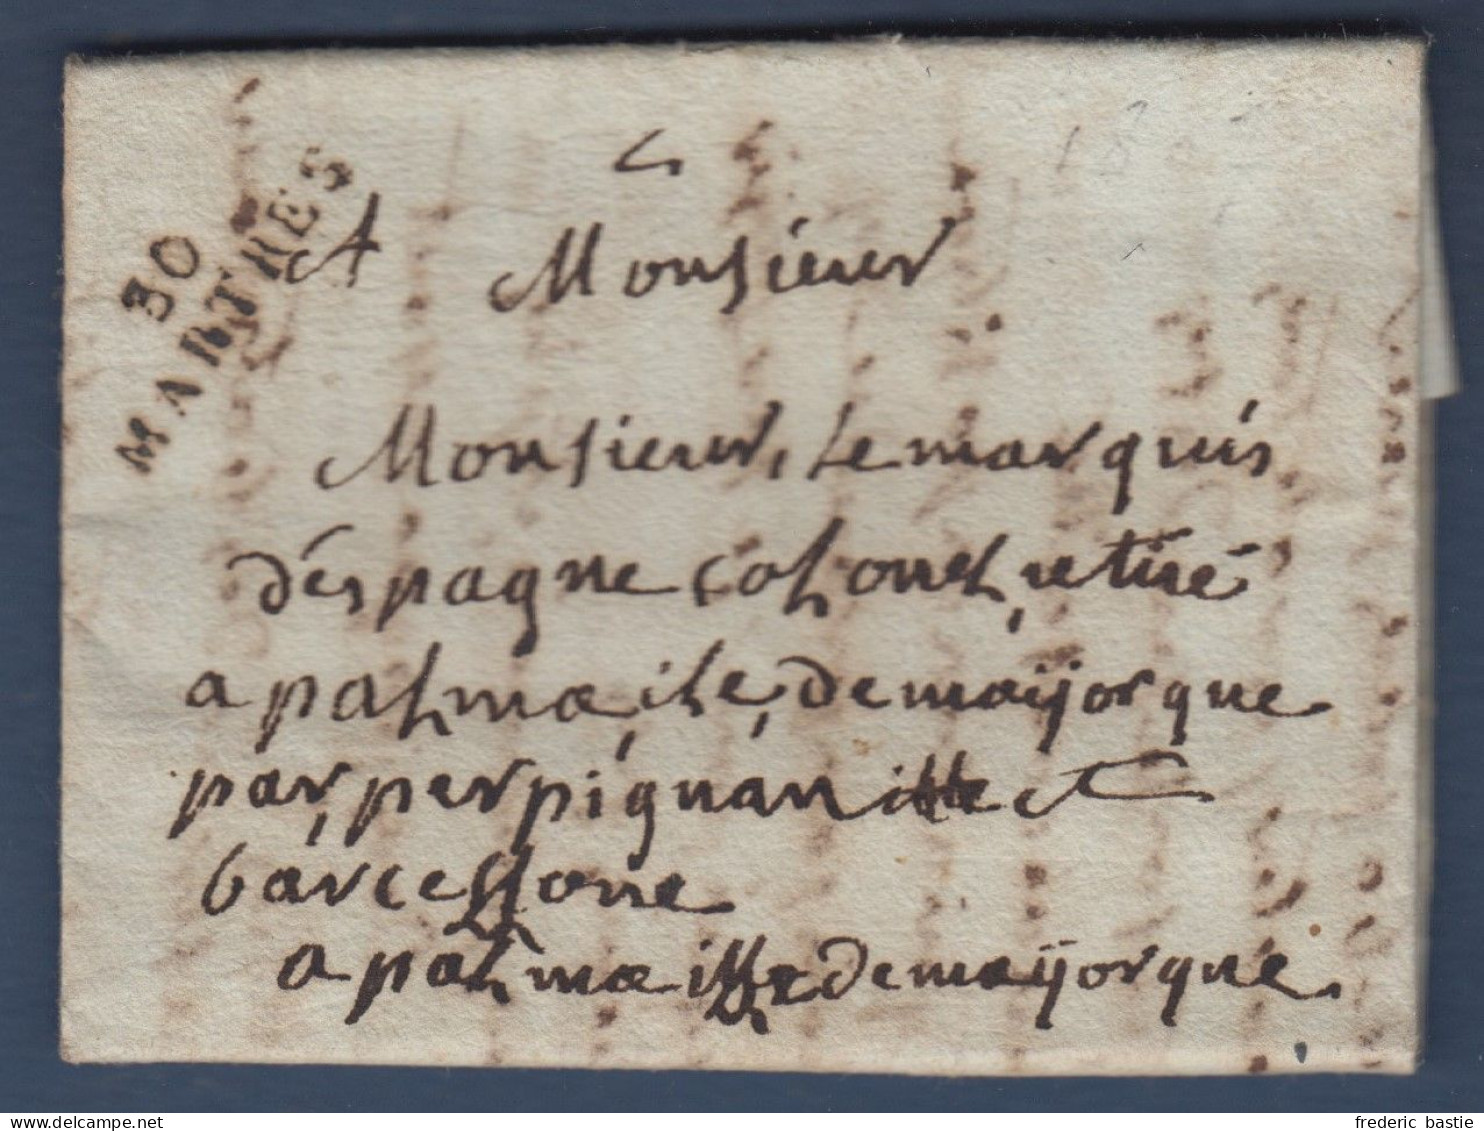 30
MARTRES
A Monsieur
Monsieur, le marquis
déspagne colonel, retiré
a palma, ile, de maijorque
par, perpignan
barcellone
a palma ille de maijorque
frederic bastie